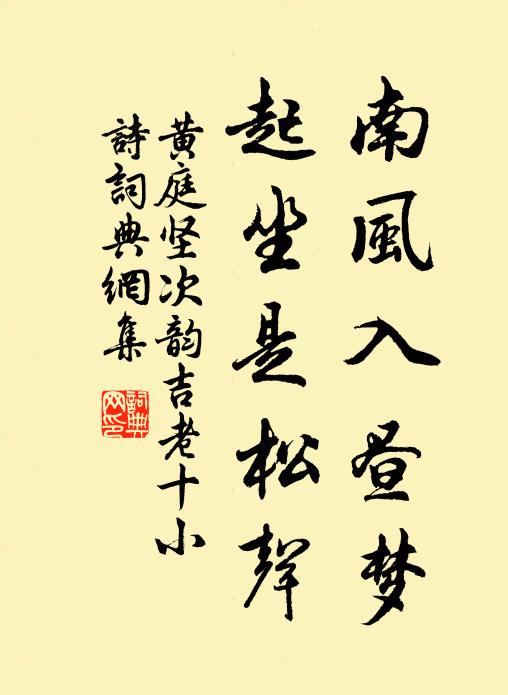 南風入昼梦
起坐是松聲
黄庭坚次韵吉老十小
詩詞典網集
詞典网印